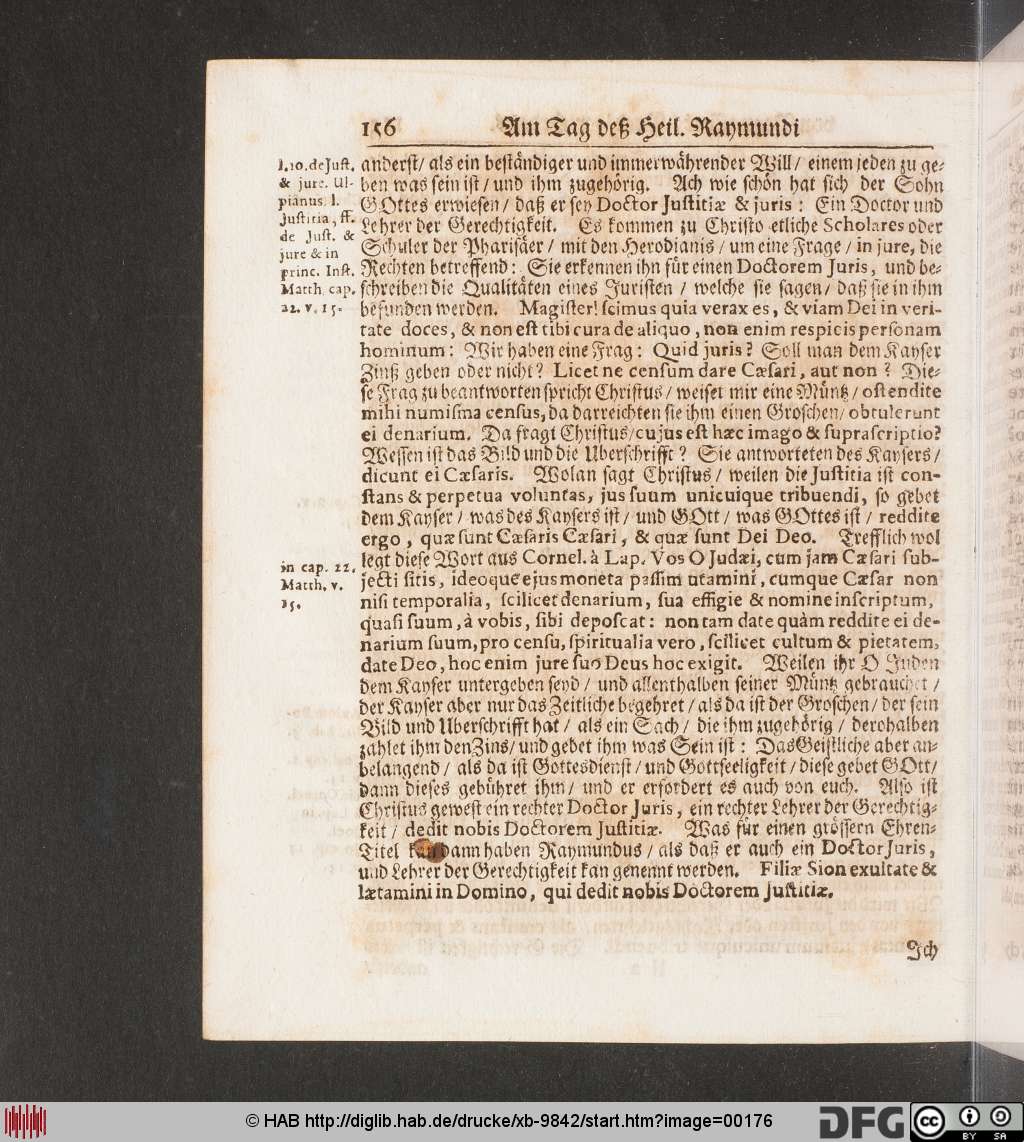 156 Am Tag deß Heil. Raymundi
l. 10. de Just.
& jure. Ul-
pianus. l.
Justitia, ff.
de Just. &
jure & in
princ. Inst.
Matth. cap.
22. v. 15.
anderst / als ein beständiger und immerwährender Will / einem jeden zu ge-
ben was sein ist / und ihm zugehörig. Ach wie schön hat sich der Sohn
GOttes erwiesen / daß er sey Doctor Justitiæ & juris : Ein Doctor und
Lehrer der Gerechtigkeit. Es kommen zu Christo etliche Scholares oder
Schuler der Pharisäer / mit den Herodianis / um eine Frage / in jure, die
Rechten betreffend : Sie erkennen ihn für einen Doctorem Juris, und be-
schreiben die Qualitäten eines Juristen / welche sie sagen / daß sie in ihm
befunden werden. Magister! scimus quia verax es, & viam Dei in veri-
tate doces, & non est tibi cura de aliquo, non enim respicis personam
hominum: Wir haben eine Frag : Quid juris? Soll man dem Kayser
Zinß geben oder nicht? Licet ne censum dare Cæsari, aut non ? Die-
se Frag zu beantworten spricht Christus / weiset mir eine Müntz / ostendite
mihi numisma census, da darreichten sie ihm einen Groschen / obtulerunt
ei denarium. Da fragt Christus / cujus est hæc imago & suprascriptio?
Wessen ist das Bild und die Uberschrifft? Sie antworteten des Kaysers /
dicunt ei Cæsaris. Wolan sagt Christus / weilen die Justitia ist con-
stans & perpetua voluntas, jus suum unicuique tribuendi, so gebet
dem Kayser / was des Kaysers ist / und GOtt / was GOttes ist / reddite
ergo, quæ sunt Cæsaris Cæsari, & quæ sunt Dei Deo. Trefflich wol
legt diese Wort aus Cornel. à Lap. Vos O Judæi, cum jam Cæsari sub-
in cap. 22.
Matth. v.
15.
jecti sitis, ideoque ejus moneta passim utamini, cumque Cæsar non
nisi temporalia, scilicet denarium, sua effigie & nomine inscriptum,
quasi suum, à vobis, sibi deposcat : non tam date quàm reddite ei de-
narium suum, pro censu, spiritualia vero, scilicet cultum & pietatem,
date Deo, hoc enim jure suo Deus hoc exigit. Weilen ihr O Juden
dem Kayser untergeben seyd / und allenthalben seiner Müntz gebrauchet /
der Kayser aber nur das Zeitliche begehret / als da ist der Groschen / der sein
Bild und Uberschrifft hat / als ein Sach / die ihm zugehörig / derohalben
zahlet ihm den Zins / und gebet ihm was Sein ist : Das Geistliche aber an-
belangend / als da ist Gottesdienst / und Gottseeligkeit / diese gebet GOtt /
dann dieses gebühret ihm / und er erfordert es auch von euch. Also ist
Christus gewest ein rechter Doctor Juris, ein rechter Lehrer der Gerechtig-
keit / dedit nobis Doctorem Justitiæ. Was für einen grössern Ehren-
Titel kan dann haben Raymundus / als daß er auch ein Doctor Juris,
und Lehrer der Gerechtigkeit kan genennt werden. Filiæ Sion exultate &
lætamini in Domino, qui dedit nobis Doctorem Justitiæ.
Ich
© HAB http://diglib.hab.de/drucke/xb-9842/start.htm?image=00176
DFG cc BY SA